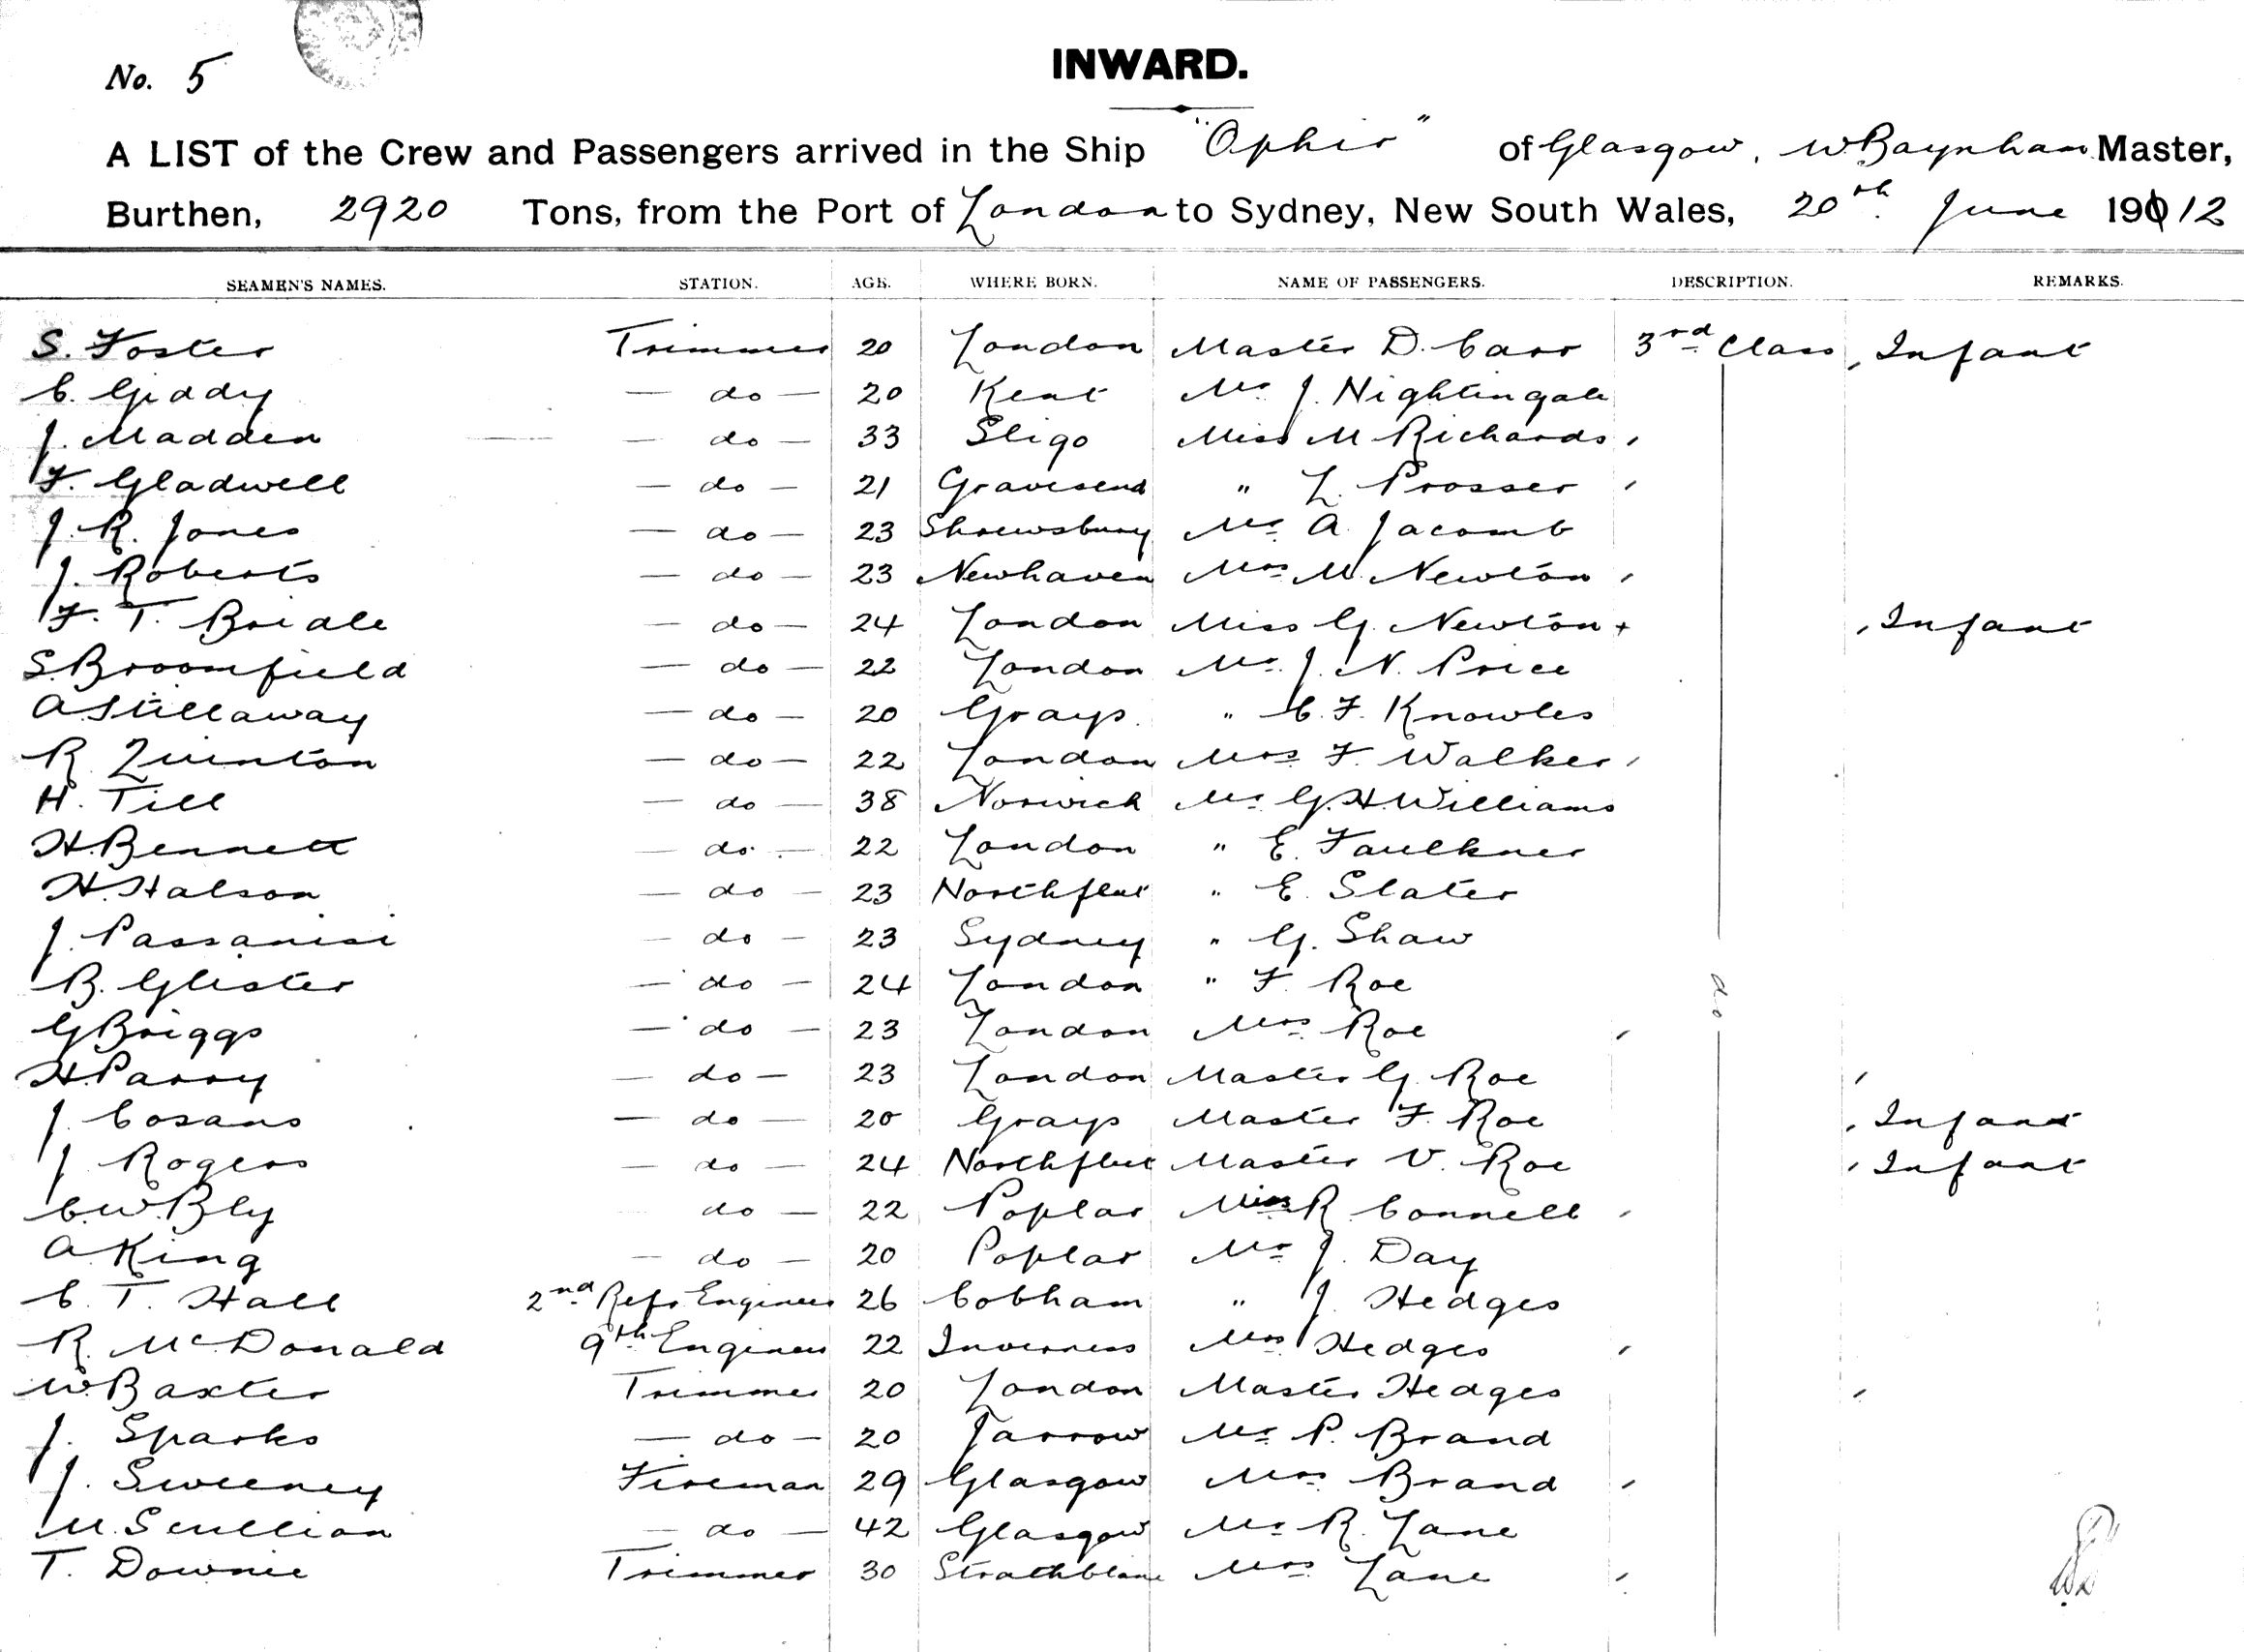 No. 5
INWARD.
A LIST of the Crew and Passengers arrived in the Ship "Ophir" of Glasgow, W Baynham Master,
Burthen, 2920 Tons, from the Port of London to Sydney, New South Wales, 20th June 19012
SEAMEN'S NAMES. STATION. AGE. WHERE BORN. NAME OF PASSENGERS. DESCRIPTION. REMARKS.
S. Foster Trimmer 20 London Master D. Carr 3rd Class Infant
C. Giddy — do — 20 Kent Mr J. Nightingale
J. Madden — do — 33 Sligo Miss M Richards
F. Gladwell — do — 21 Gravesend " L. Prosser
J. R. Jones — do — 23 Shrewsbury Mr A. Jacomb
J. Roberts — do — 23 Newhaven Mrs M. Newton
F. T. Bridle — do — 24 London Miss G. Newton + Infant
S. Broomfield — do — 22 London Mr. J. N. Price
A Stillaway — do — 20 Grays. " C. F. Knowles
R Quinton — do — 22 London Mrs F. Walker
H. Till — do — 38 Norwich Mr G. H. Williams
H. Bennett — do — 22 London " E. Faulkner
H. Halson — do — 23 Northfleet " E. Slater
J. Passanisi — do — 23 Sydney " G. Shaw
B. Glister — do — 24 London " F. Roe do
G Briggs — do — 23 London Mrs. Roe
H. Parry — do — 23 London Master G. Roe
J. Cosans — do — 20 Grays Master F. Roe Infant
J Rogers — do — 24 Northfleet Master V. Roe Infant
C. W. Bly do — 22 Poplar Miss R. Connell
A. King — do — 20 Poplar Mr J. Day
C. T. Hall 2nd Refr Engineer 26 Cobham " J. Hedges
R. McDonald 9th Engineer 22 Inverness Mrs Hedges
W. Baxter Trimmer 20 London Master Hedges
J. Sparks — do — 20 Jarrow Mr. P. Brand
J. Sweeney Fireman 29 Glasgow Mrs Brand
M. Scullion — do — 42 Glasgow Mr R. Lane
T. Downie Trimmer 30 Strathblane Mrs. Lane